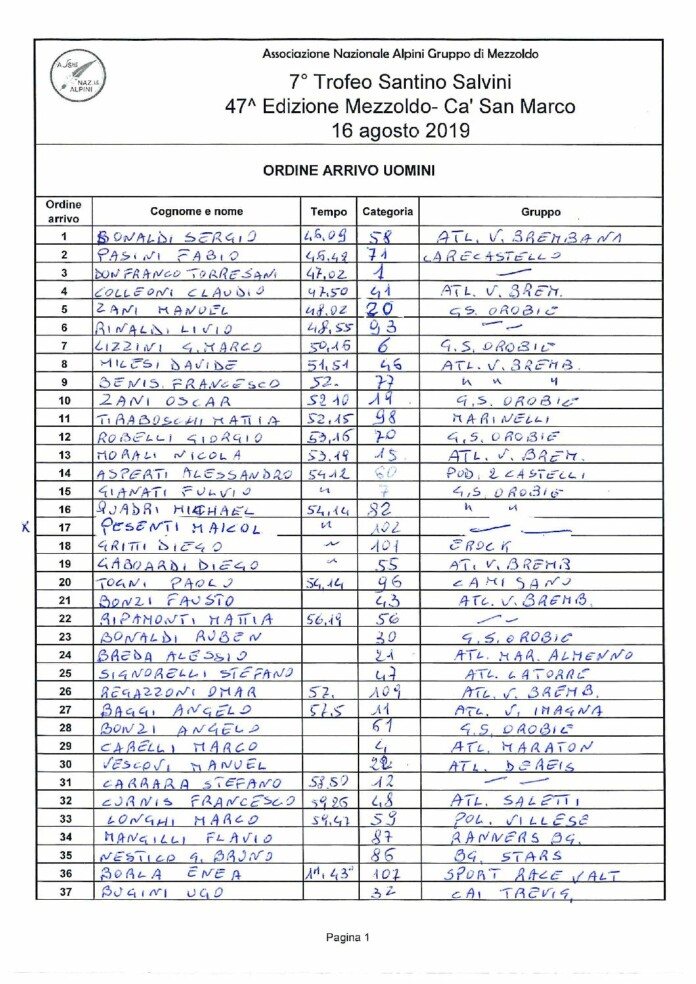 ASSOC. NAZ.LE ALPINI
Associazione Nazionale Alpini Gruppo di Mezzoldo
7° Trofeo Santino Salvini
47^ Edizione Mezzoldo- Ca' San Marco
16 agosto 2019
ORDINE ARRIVO UOMINI
Ordine arrivo Cognome e nome Tempo Categoria Gruppo
1 BONALDI SERGIO 46,09 58 ATL. V. BREMBANA
2 PASINI FABIO 46,42 71 CARECASTELLO
3 DONFRANCO TORRESANI 47,02 1 —
4 COLLEONI CLAUDIO 47,50 41 ATL. V. BREM.
5 ZANI MANUEL 48,02 20 GS. OROBIE
6 RINALDI LIVIO 48,55 93 — —
7 LIZZINI G.MARCO 50,16 6 G.S. OROBIE
8 MILESI DAVIDE 51,51 46 ATL. V. BREMB.
9 BENIS. FRANCESCO 52. 77 " " "
10 ZANI OSCAR 52 10 19 G.S. OROBIE
11 TIRABOSCHI MATTIA 52,15 98 MARINELLI
12 ROBELLI GIORGIO 53,16 70 G.S. OROBIE
13 MORALI NICOLA 53,19 15. ATL. V. BREM.
14 ASPERTI ALESSANDRO 54 12 60 POD. 2 CASTELLI
15 GIANATI FULVIO " 7 G.S. OROBIE
16 QUADRI MICHAEL 54,14 82 " "
X 17 PESENTI MAICOL " 102 — —
18 GRITTI DIEGO ~ 101 EROCK
19 GABOARDI DIEGO ~ 55 AT. V. BREMB
20 TOGNI PAOLO 54,14 96 CAMISANO
21 BONZI FAUSTO 43 ATL. V. BREMB.
22 RIPAMONTI MATTIA 56,19 56 —
23 BONALDI RUBEN 30 G.S. OROBIE
24 BREDA ALESSIO 21 ATL. MAR. ALMENNO
25 SIGNORELLI STEFANO 47 ATL. LATORRE
26 REGAZZONI OMAR 57, 109 ATL. V. BREMB.
27 BAGGI ANGELO 57,5 11 ATL. V. IMAGNA
28 BONZI ANGELO 61 G.S. OROBIE
29 CARELLI MARCO 4 ATL. MARATON
30 VESCOVI MANUEL 22 ATL. DEREIS
31 CARRARA STEFANO 58,50 12 — —
32 CURNIS FRANCESCO 59 26 48 ATL. SALETTI
33 LONGHI MARCO 59,47 59 POL. VILLESE
34 MANGILLI FLAVIO 87 RANNERS BG.
35 NESTICO G. BRUNO 86 BG. STARS
36 BORLA ENEA 1H, 43" 107 SPORT RACE VALT
37 BUGINI UGO 32 CAI TREVIG.
Pagina 1